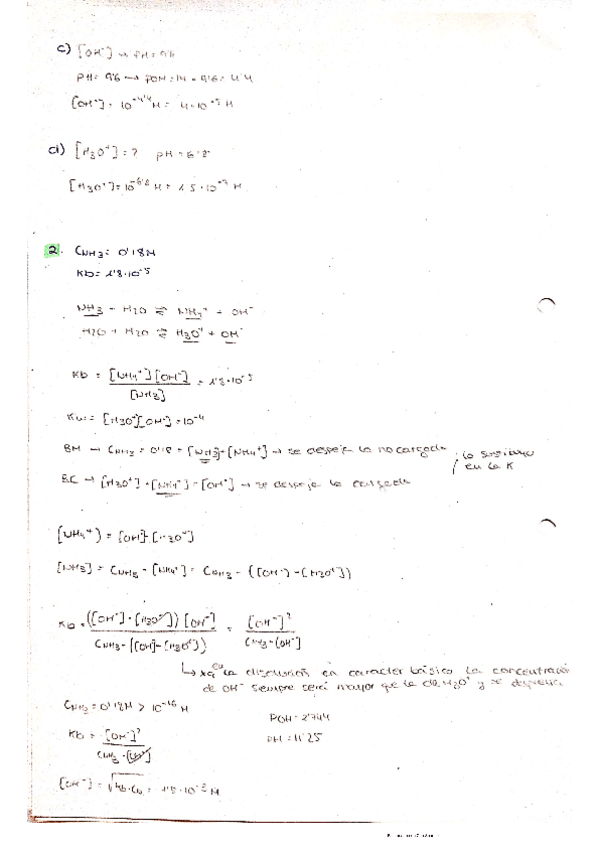 c) [OH⁻] → pH = 9'6
pH = 9'6 → pOH = 14 - 9'6 = 4'4
[OH⁻] = 10⁻⁴'⁴ M = 4·10⁻⁵ M
d) [H₃O⁺] = ? pH = 6'8
[H₃O⁺] = 10⁻⁶'⁸ M = 1'5·10⁻⁷ M
2. C_NH₃ = 0'18 M
Kb = 1'8·10⁻⁵
NH₃ + H₂O ⇌ NH₄⁺ + OH⁻
H₂O + H₂O ⇌ H₃O⁺ + OH⁻
Kb = [NH₄⁺][OH⁻] / [NH₃] = 1'8·10⁻⁵
Kw = [H₃O⁺][OH⁻] =
BM → C_NH₃ = 0'18 = [NH₃] + [NH₄⁺] → se despeja la no cargada
lo sustituyo en la K
BC → [H₃O⁺] + [NH₄⁺] = [OH⁻] → se despeja la cargada
[NH₄⁺] = [OH⁻] - [H₃O⁺]
[NH₃] = C_NH₃ - [NH₄⁺] = C_NH₃ - ([OH⁻] - [H₃O⁺])
Kb = ([OH⁻] - [H₃O⁺]) [OH⁻] / C_NH₃ - ([OH⁻] - [H₃O⁺]) = [OH⁻]² / C_NH₃ - [OH⁻]
la disolución en caracter básico la concentración
de OH⁻ siempre será mayor que la de H₃O⁺ y se desprecia
C_NH₃ = 0'18 M >
pOH = 2'744
Kb = [OH⁻]² / C_NH₃ - [OH⁻]
pH = 11'25
[OH⁻] = √Kb·Cb = 1'8·10⁻³ M